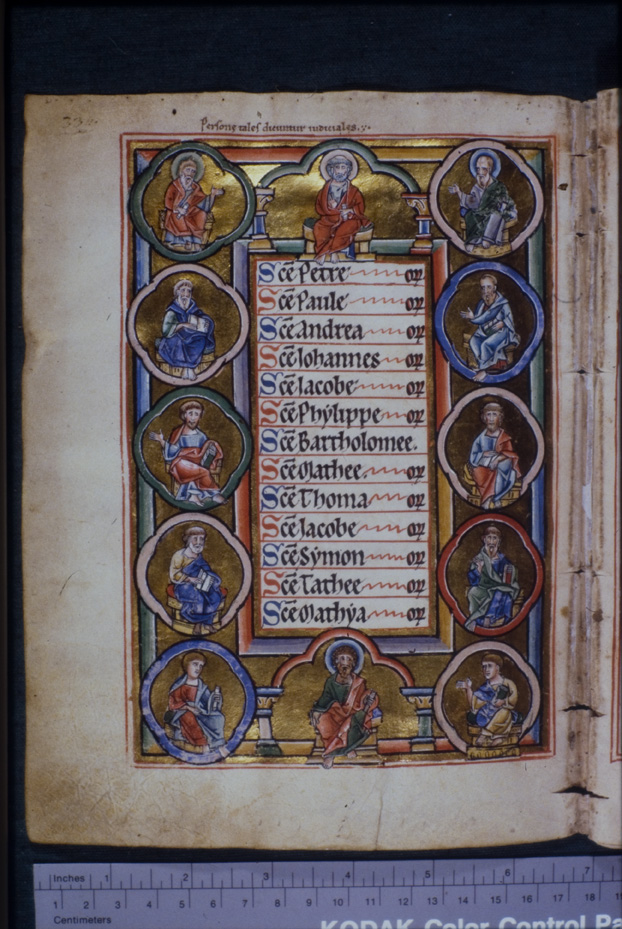 Persone tales dicuntur iudiciales.
Sc̄e Petre or̄
Sc̄e Paule or̄
Sc̄e Andrea or̄
Sc̄e Iohannes or̄
Sc̄e Iacobe or̄
Sc̄e Phylippe or̄
Sc̄e Bartholomee.
Sc̄e Mathee. or̄
Sc̄e Thoma or̄
Sc̄e Iacobe or̄
Sc̄e Symon or̄
Sc̄e Tathee or̄
Sc̄e Mathya or̄
Inches 1 2 3 4 5 6 7
1 2 3 4 5 6 7 8 9 10 11 12 13 14 15 16 17 18
Centimeters
KODAK Color Control